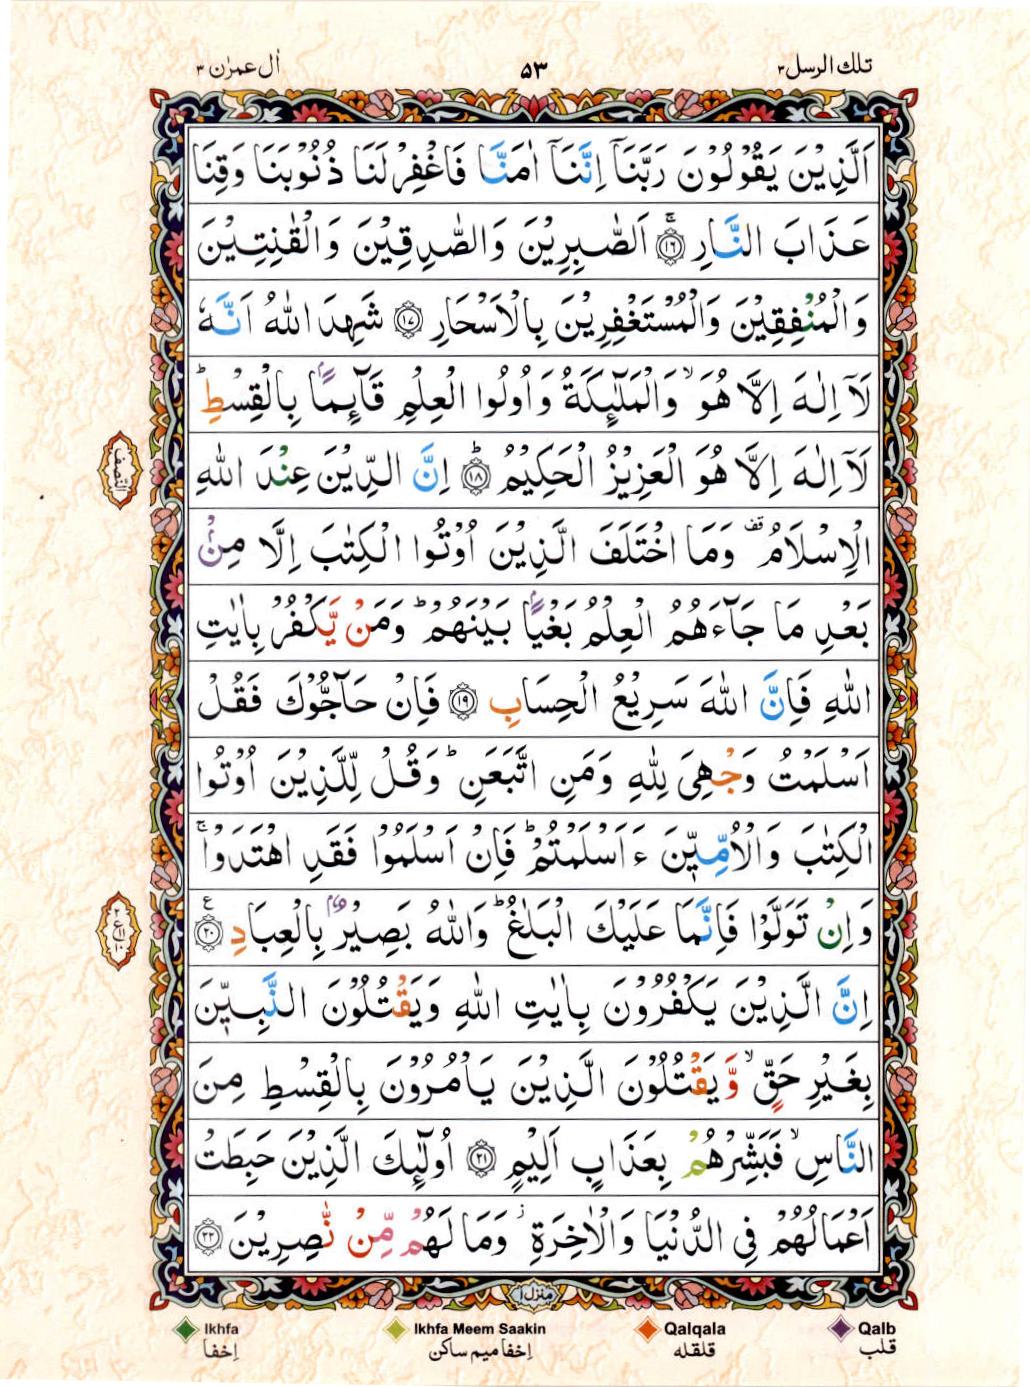 تلك الرسل ٣
٥٣
اٰل عمرٰن ٣
اَلَّذِيْنَ يَقُوْلُوْنَ رَبَّنَاۤ اِنَّنَاۤ اٰمَنَّا فَاغْفِرْ لَنَا ذُنُوْبَنَا وَقِنَا
عَذَابَ النَّارِۚ ﴿١٦﴾ اَلصّٰبِرِيْنَ وَالصّٰدِقِيْنَ وَالْقٰنِتِيْنَ
وَالْمُنْفِقِيْنَ وَالْمُسْتَغْفِرِيْنَ بِالْاَسْحَارِ ﴿١٧﴾ شَهِدَ اللّٰهُ اَنَّهٗ
لَاۤ اِلٰهَ اِلَّا هُوَۙ وَالْمَلٰٓئِكَةُ وَاُولُوا الْعِلْمِ قَآئِمًاۢ بِالْقِسْطِؕ
لَاۤ اِلٰهَ اِلَّا هُوَ الْعَزِيْزُ الْحَكِيْمُؕ ﴿١٨﴾ اِنَّ الدِّيْنَ عِنْدَ اللّٰهِ
النصف
الْاِسْلَامُ قف وَمَا اخْتَلَفَ الَّذِيْنَ اُوْتُوا الْكِتٰبَ اِلَّا مِنْۢ
بَعْدِ مَا جَآءَهُمُ الْعِلْمُ بَغْيًاۢ بَيْنَهُمْؕ وَمَنْ يَّكْفُرْ بِاٰيٰتِ
اللّٰهِ فَاِنَّ اللّٰهَ سَرِيْعُ الْحِسَابِ ﴿١٩﴾ فَاِنْ حَآجُّوْكَ فَقُلْ
اَسْلَمْتُ وَجْهِىَ لِلّٰهِ وَمَنِ اتَّبَعَنِؕ وَقُلْ لِّلَّذِيْنَ اُوْتُوا
الْكِتٰبَ وَالْاُمِّيّٖنَ ءَاَسْلَمْتُمْؕ فَاِنْ اَسْلَمُوْا فَقَدِ اهْتَدَوْاۚ
وَاِنْ تَوَلَّوْا فَاِنَّمَا عَلَيْكَ الْبَلٰغُؕ وَاللّٰهُ بَصِيْرٌۢ بِالْعِبَادِ ﴿٢٠﴾ ع
اِنَّ الَّذِيْنَ يَكْفُرُوْنَ بِاٰيٰتِ اللّٰهِ وَيَقْتُلُوْنَ النَّبِيّٖنَ
بِغَيْرِ حَقٍّۙ وَّيَقْتُلُوْنَ الَّذِيْنَ يَاْمُرُوْنَ بِالْقِسْطِ مِنَ
النَّاسِۙ فَبَشِّرْهُمْ بِعَذَابٍ اَلِيْمٍ ﴿٢١﴾ اُولٰٓئِكَ الَّذِيْنَ حَبِطَتْ
اَعْمَالُهُمْ فِى الدُّنْيَا وَالْاٰخِرَةِؗ وَمَا لَهُمْ مِّنْ نّٰصِرِيْنَ ﴿٢٢﴾
منزل ١
Ikhfa
اِخفا
Ikhfa Meem Saakin
اِخفا میم ساکن
Qalqala
قلقله
Qalb
قلب